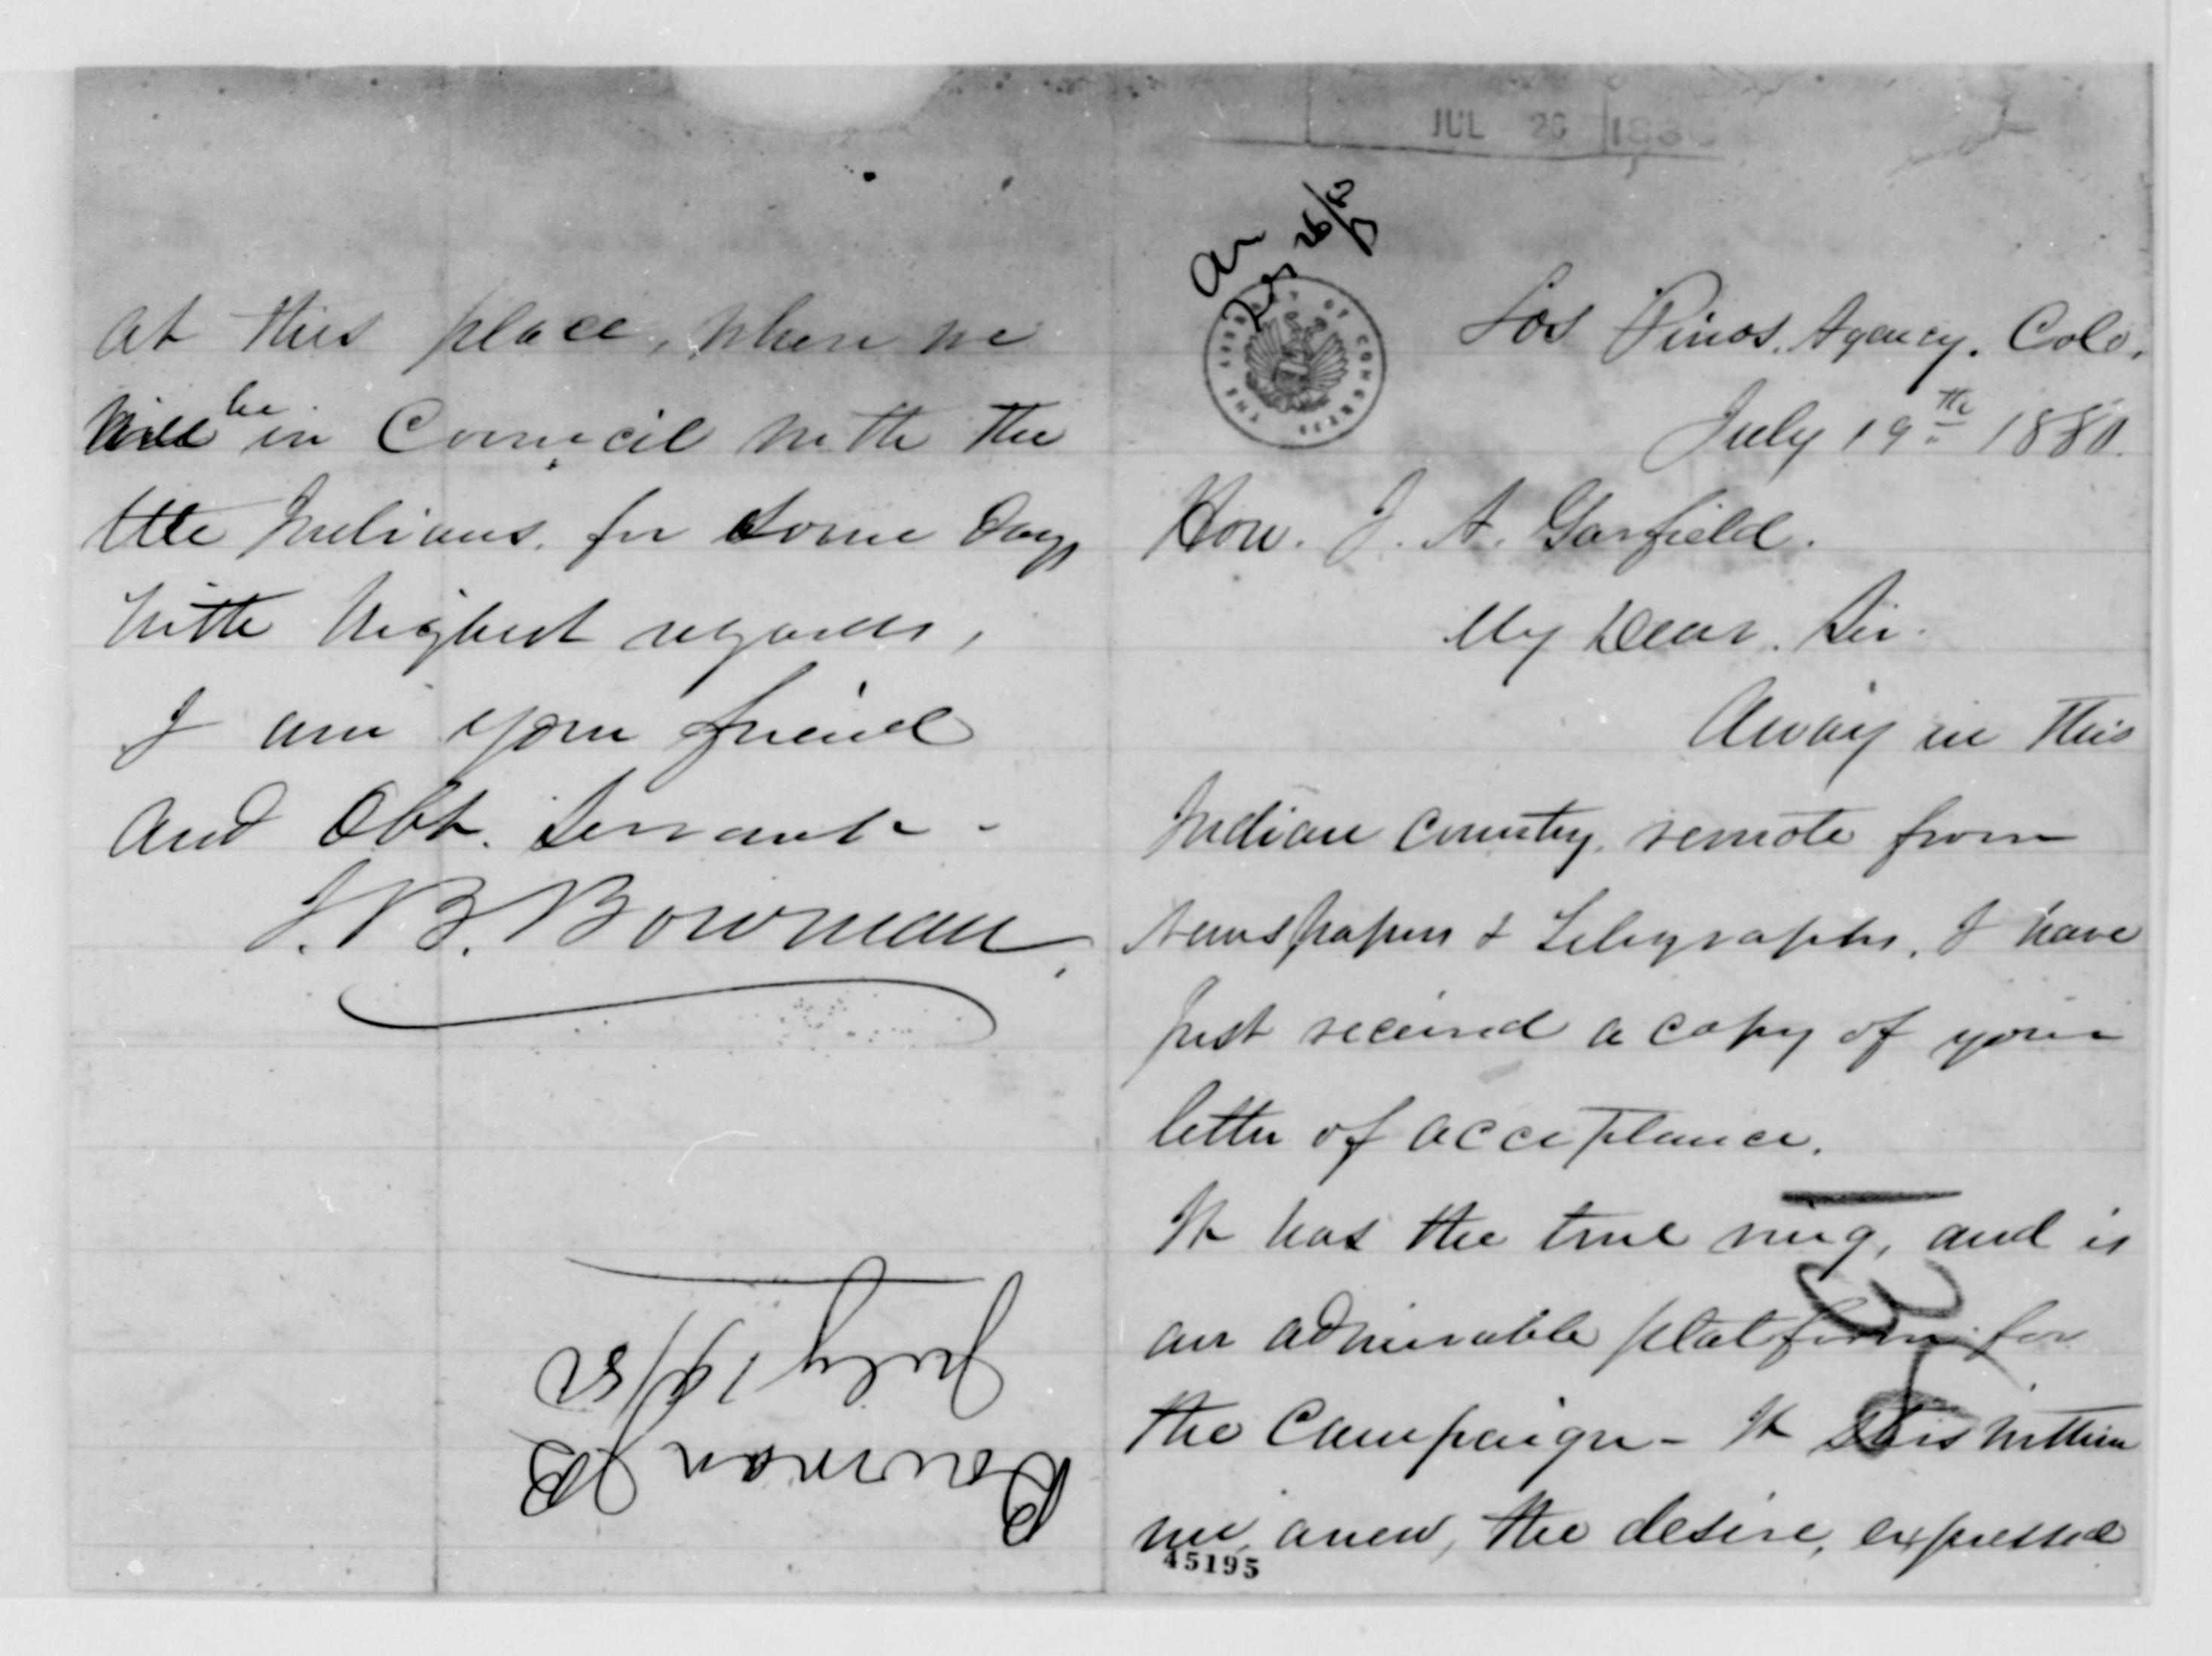 JUL 26 1880
An
July 26/80
THE LIBRARY OF CONGRESS
Los Pinos, Agency. Colo.
July 19th 1880.
Hon. J. A. Garfield.
My Dear. Sir.
Away in this
Indian Country, remote from
Newspapers & Telegraphs, I have
just received a copy of your
letter of acceptance.
It has the true ring, and is
an admirable platform for
the Campaign - It stirs within
me, anew, the desire, expressed
45195
at this place, where we
will be in Council with the
Ute Indians, for some days
With highest regards,
I am your friend
and Obt. Servant -
J. B. Bowman.
Bowman JB
July 19/80